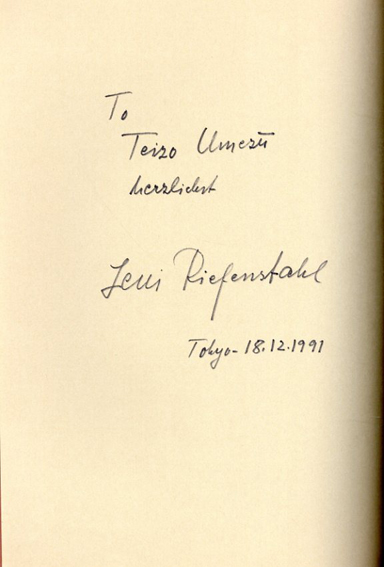 To
Teizo Umezū
herzlichst
Leni Riefenstahl
Tokyo - 18.12.1991